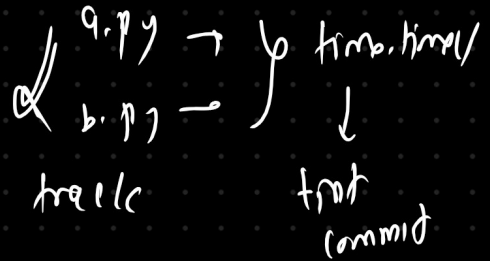 a.py → time.time()
b.py →
track
first
commit